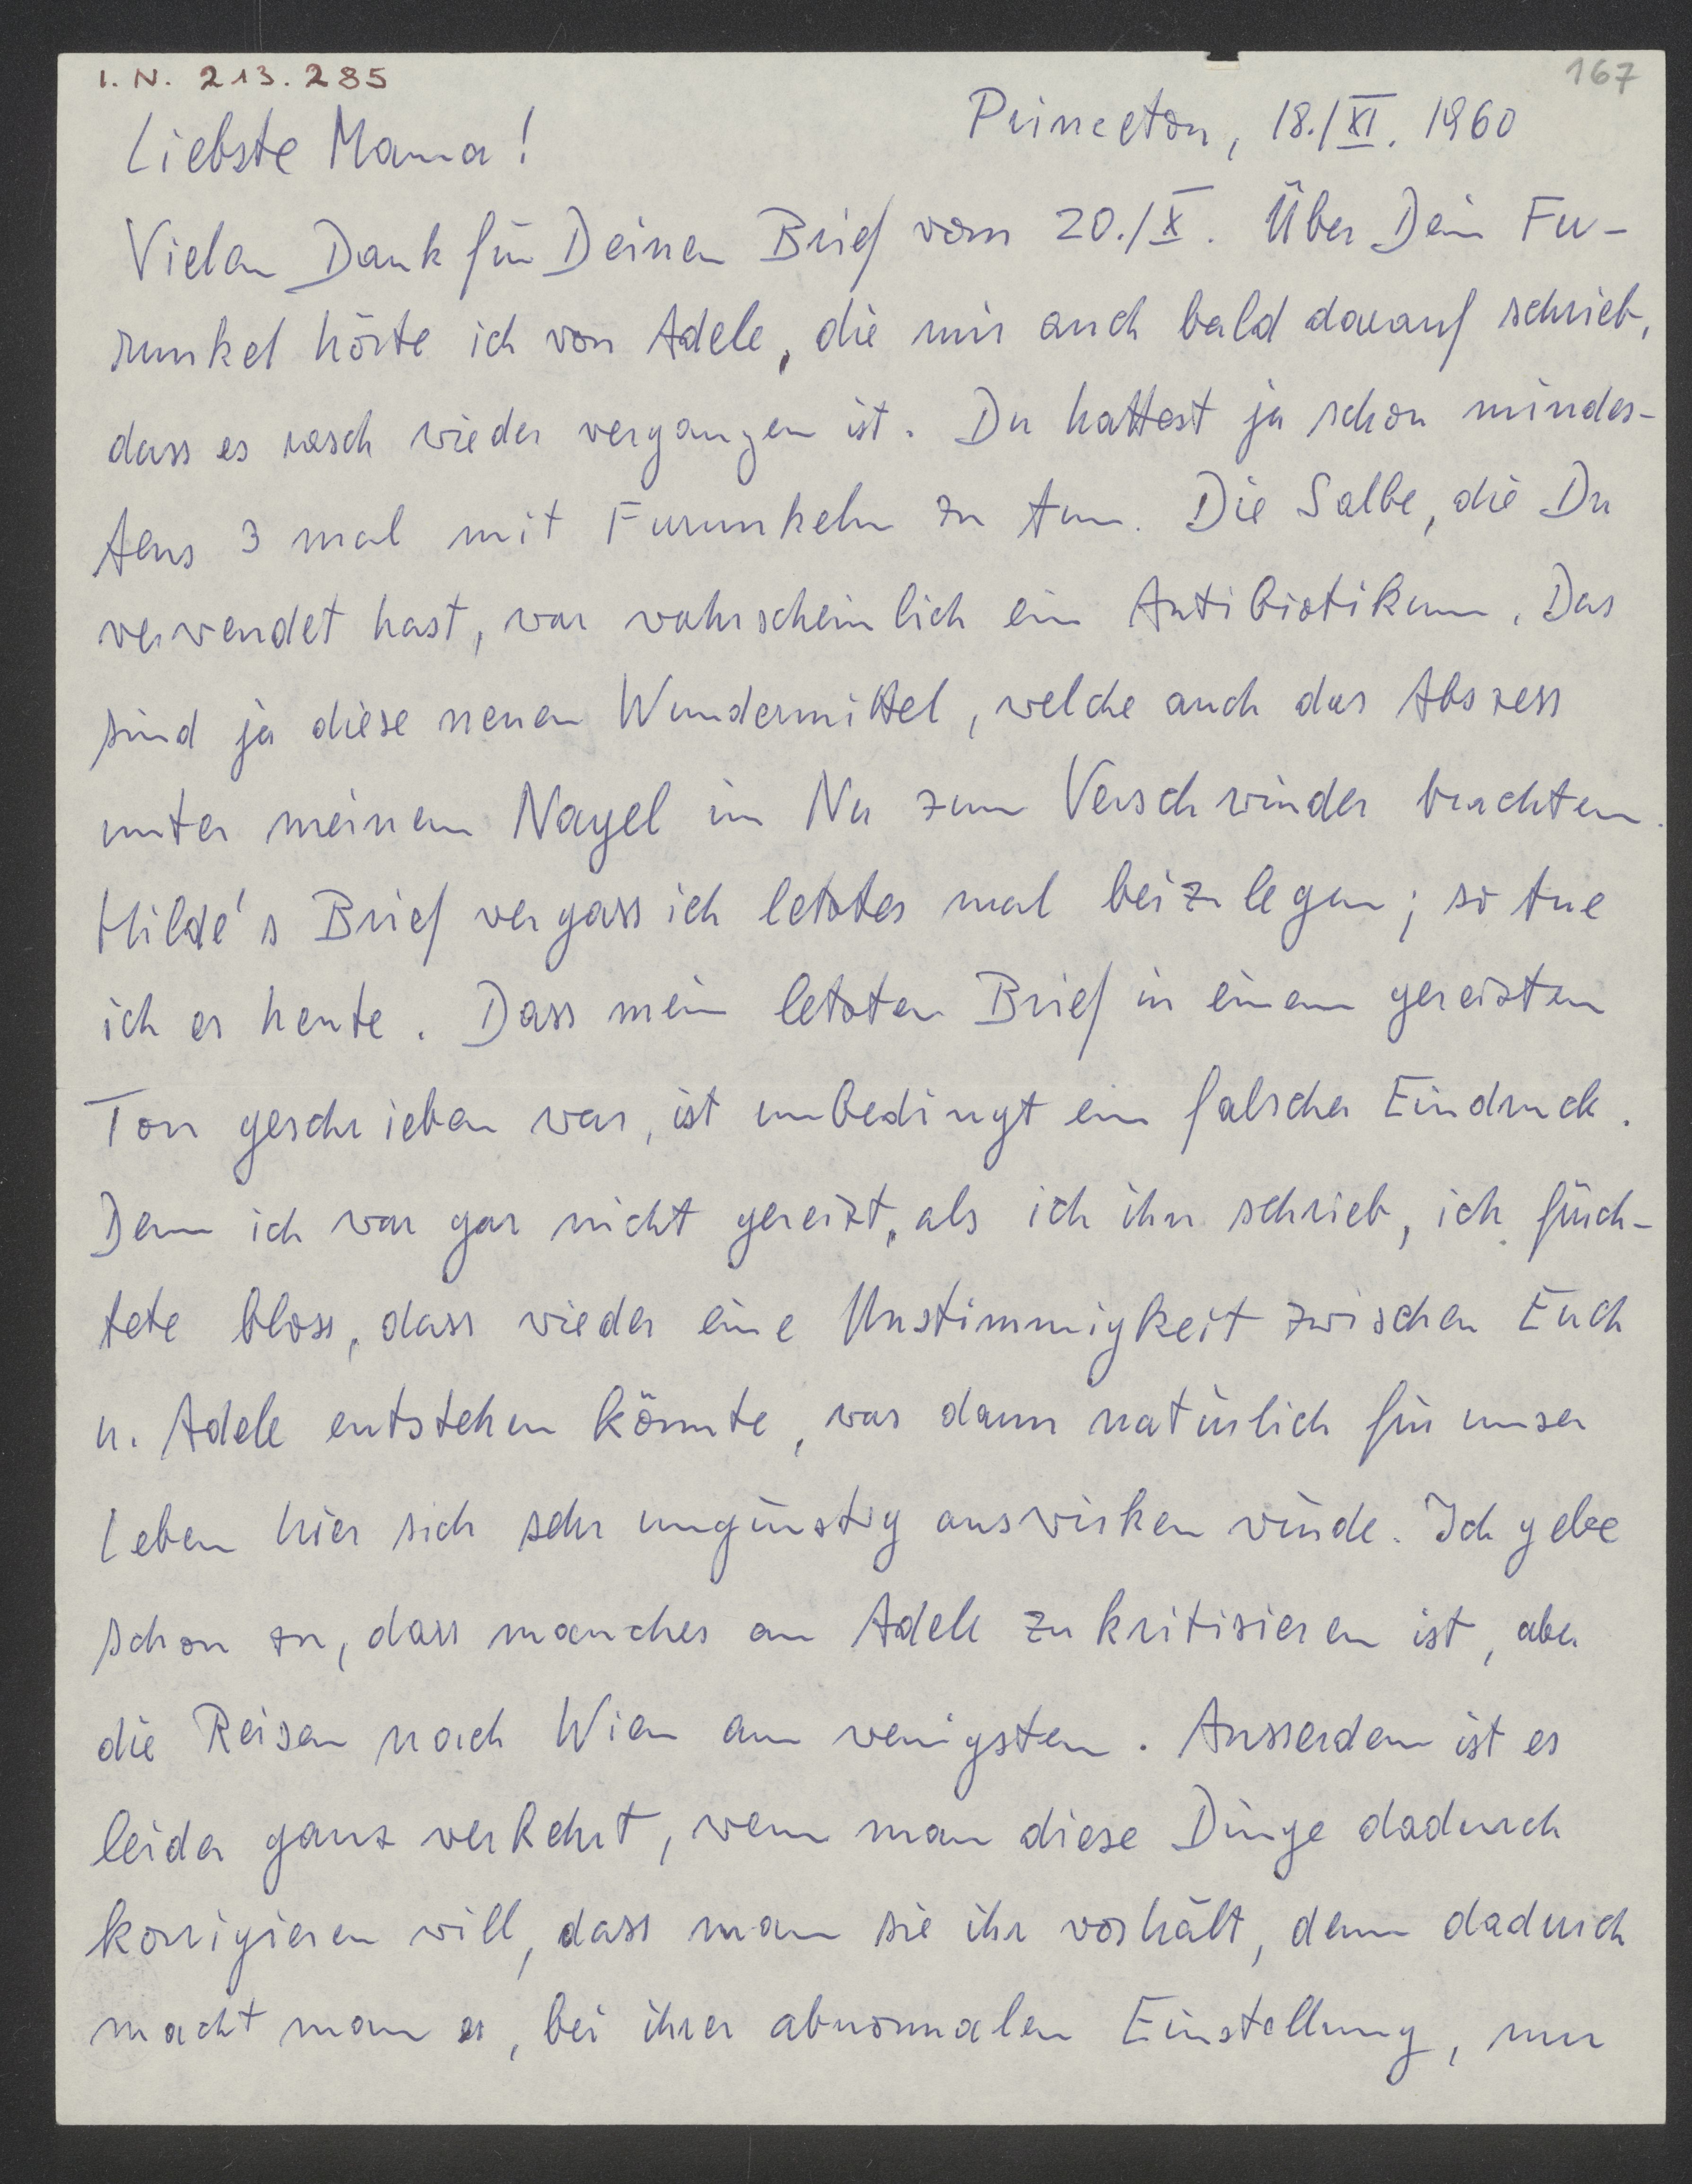 I. N. 213.285
167
Princeton, 18./XI. 1960
Liebste Mama!
Vielen Dank für Deinen Brief vom 20./X. Über Dein Fu-
runkel hörte ich von Adele, die mir auch bald darauf schrieb,
dass es rasch wieder vergangen ist. Du hattest ja schon mindes-
tens 3 mal mit Furunkeln zu tun. Die Salbe, die Du
verwendet hast, war wahrscheinlich ein Antibiotikum. Das
sind ja diese neuen Wundermittel, welche auch das Abszess
unter meinem Nagel im Nu zum Verschwinden brachten.
Hilde's Brief vergass ich letztes mal beizulegen; so tue
ich es heute. Dass mein letzter Brief in einem gereizten
Ton geschrieben war, ist unbedingt ein falscher Eindruck.
Denn ich war gar nicht gereizt, als ich ihn schrieb, ich fürch-
tete bloss, dass wieder eine Unstimmigkeit zwischen Euch
u. Adele entstehen könnte, was dann natürlich für unser
Leben hier sich sehr ungünstig auswirken würde. Ich gebe
schon zu, dass manches an Adele zu kritisieren ist, aber
die Reisen nach Wien am wenigsten. Ausserdem ist es
leider ganz verkehrt, wenn man diese Dinge dadurch
korrigieren will, dass man sie ihr vorhält, denn dadurch
macht man es, bei ihrer abnormalen Einstellung, nur